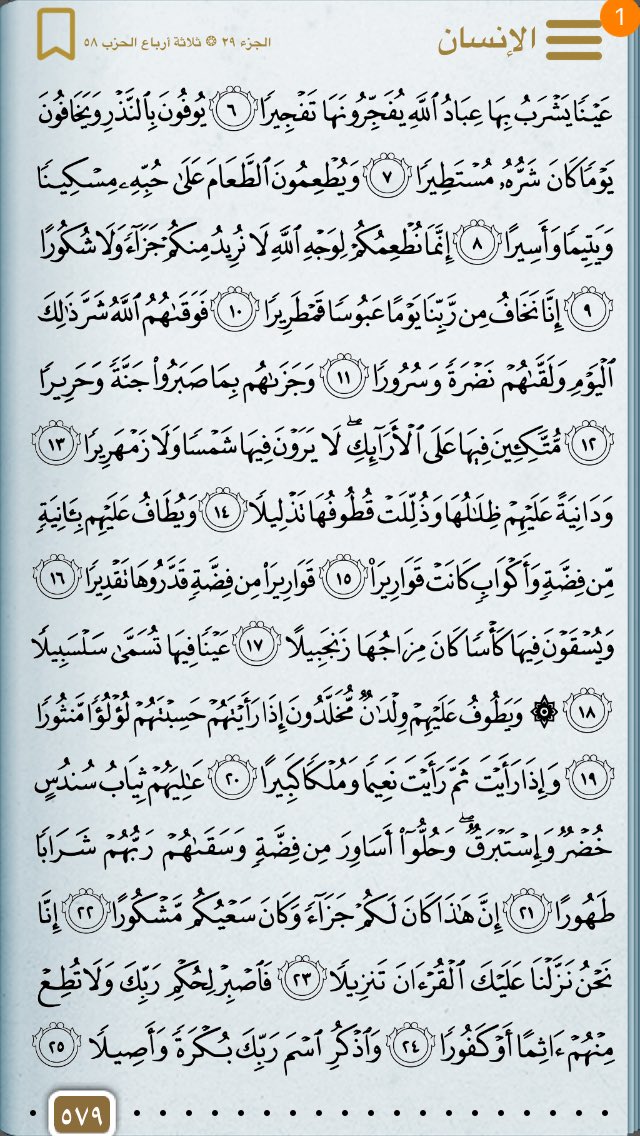 1
الإنسان
الجزء ٢٩ ۞ ثلاثة أرباع الحزب ٥٨
عَيْنًا يَشْرَبُ بِهَا عِبَادُ ٱللَّهِ يُفَجِّرُونَهَا تَفْجِيرًا ٦ يُوفُونَ بِٱلنَّذْرِ وَيَخَافُونَ
يَوْمًا كَانَ شَرُّهُۥ مُسْتَطِيرًا ٧ وَيُطْعِمُونَ ٱلطَّعَامَ عَلَىٰ حُبِّهِۦ مِسْكِينًا
وَيَتِيمًا وَأَسِيرًا ٨ إِنَّمَا نُطْعِمُكُمْ لِوَجْهِ ٱللَّهِ لَا نُرِيدُ مِنكُمْ جَزَآءً وَلَا شُكُورًا
٩ إِنَّا نَخَافُ مِن رَّبِّنَا يَوْمًا عَبُوسًا قَمْطَرِيرًا ١٠ فَوَقَىٰهُمُ ٱللَّهُ شَرَّ ذَٰلِكَ
ٱلْيَوْمِ وَلَقَّىٰهُمْ نَضْرَةً وَسُرُورًا ١١ وَجَزَىٰهُم بِمَا صَبَرُوا۟ جَنَّةً وَحَرِيرًا
١٢ مُّتَّكِـِٔينَ فِيهَا عَلَى ٱلْأَرَآئِكِ ۖ لَا يَرَوْنَ فِيهَا شَمْسًا وَلَا زَمْهَرِيرًا ١٣
وَدَانِيَةً عَلَيْهِمْ ظِلَـٰلُهَا وَذُلِّلَتْ قُطُوفُهَا تَذْلِيلًا ١٤ وَيُطَافُ عَلَيْهِم بِـَٔانِيَةٍ
مِّن فِضَّةٍ وَأَكْوَابٍ كَانَتْ قَوَارِيرَا۠ ١٥ قَوَارِيرَا۟ مِن فِضَّةٍ قَدَّرُوهَا تَقْدِيرًا ١٦
وَيُسْقَوْنَ فِيهَا كَأْسًا كَانَ مِزَاجُهَا زَنجَبِيلًا ١٧ عَيْنًا فِيهَا تُسَمَّىٰ سَلْسَبِيلًا
١٨ ۞ وَيَطُوفُ عَلَيْهِمْ وِلْدَٰنٌ مُّخَلَّدُونَ إِذَا رَأَيْتَهُمْ حَسِبْتَهُمْ لُؤْلُؤًا مَّنثُورًا
١٩ وَإِذَا رَأَيْتَ ثَمَّ رَأَيْتَ نَعِيمًا وَمُلْكًا كَبِيرًا ٢٠ عَـٰلِيَهُمْ ثِيَابُ سُندُسٍ
خُضْرٌ وَإِسْتَبْرَقٌ ۖ وَحُلُّوٓا۟ أَسَاوِرَ مِن فِضَّةٍ وَسَقَىٰهُمْ رَبُّهُمْ شَرَابًا
طَهُورًا ٢١ إِنَّ هَـٰذَا كَانَ لَكُمْ جَزَآءً وَكَانَ سَعْيُكُم مَّشْكُورًا ٢٢ إِنَّا
نَحْنُ نَزَّلْنَا عَلَيْكَ ٱلْقُرْءَانَ تَنزِيلًا ٢٣ فَٱصْبِرْ لِحُكْمِ رَبِّكَ وَلَا تُطِعْ
مِنْهُمْ ءَاثِمًا أَوْ كَفُورًا ٢٤ وَٱذْكُرِ ٱسْمَ رَبِّكَ بُكْرَةً وَأَصِيلًا ٢٥
٥٧٩